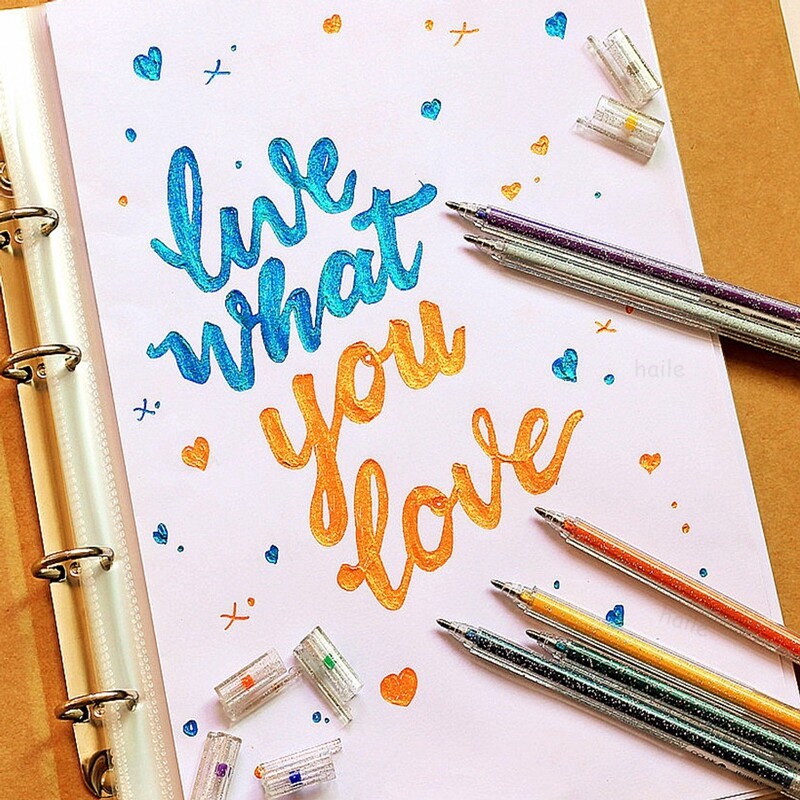 live
what
you
love
haile
haile